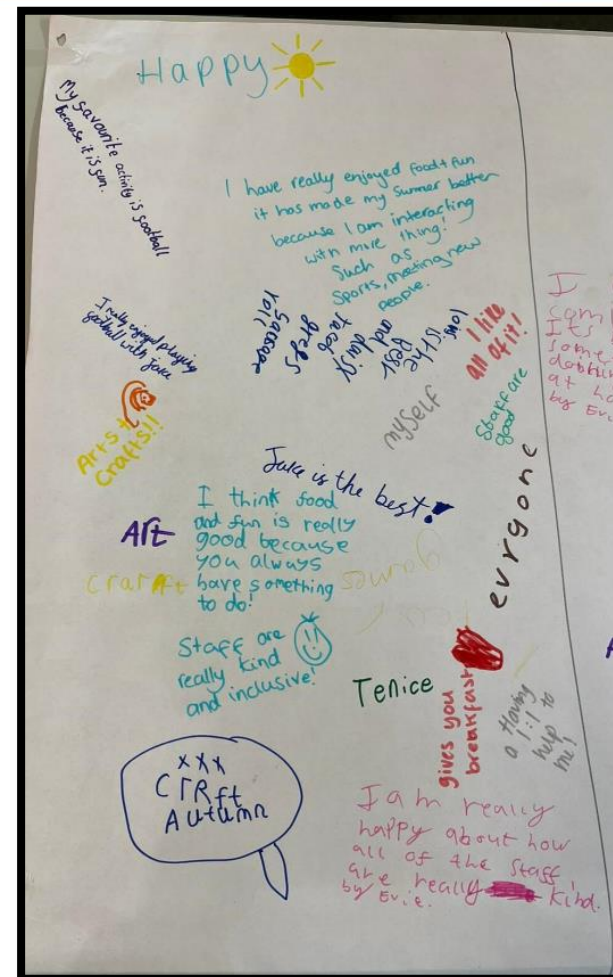 Happy
My favourite activity is football
because it is fun.
I have really enjoyed food + fun
it has made my summer better
because I am interacting
with more thing!
Such as
Sports, meeting new
people.
I really enjoyed playing
football with Jake
is the
best
and daisy
Jacob
I like
all of it!
Staff are
good
myself
Arts +
Crafts!!
Jake is the best!
evrgone
Art
Crarft
I think food
and fun is really
good because
you always
have something
to do!
Staff are
really kind
and inclusive!
Tenice
gives you
breakfast
Having
a 1:1 to
help
me!
xxx
CrRft
Autumn
I am really
happy about how
all of the staff
are really kind.
by Evie.
I
Its
some
at
by